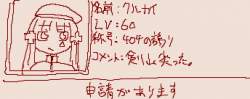 名前:クルカイ
LV:60
称号:404の誇り
コメント:
申請があります